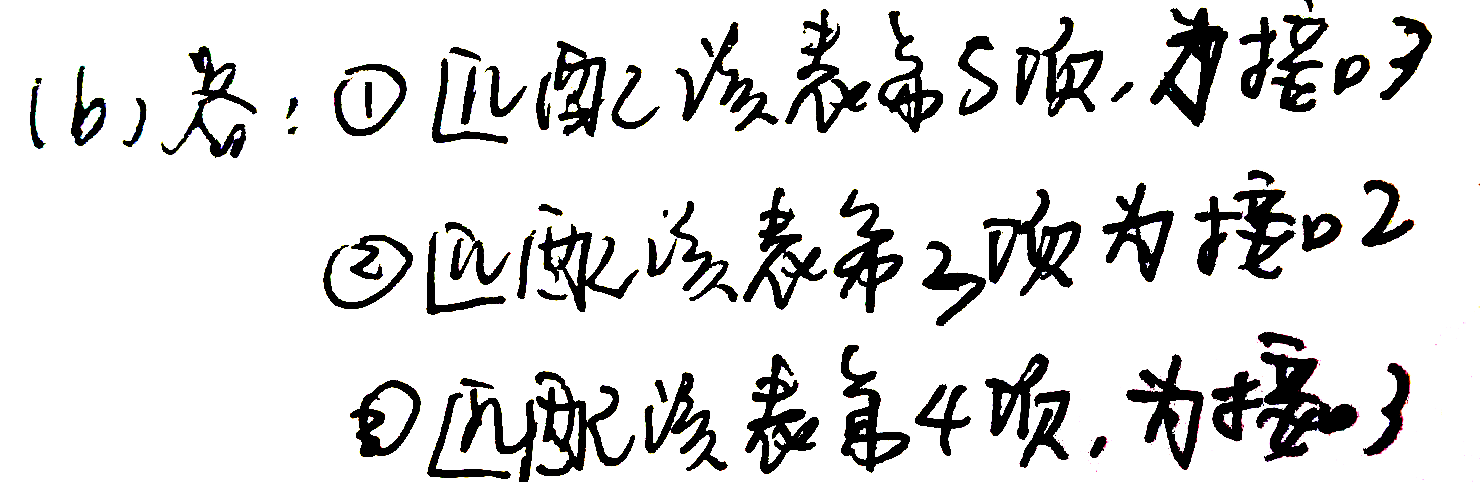 (b)答:①匹配该表第5项,为接口3
②匹配该表第3项为接口2
③匹配该表第4项,为接口3